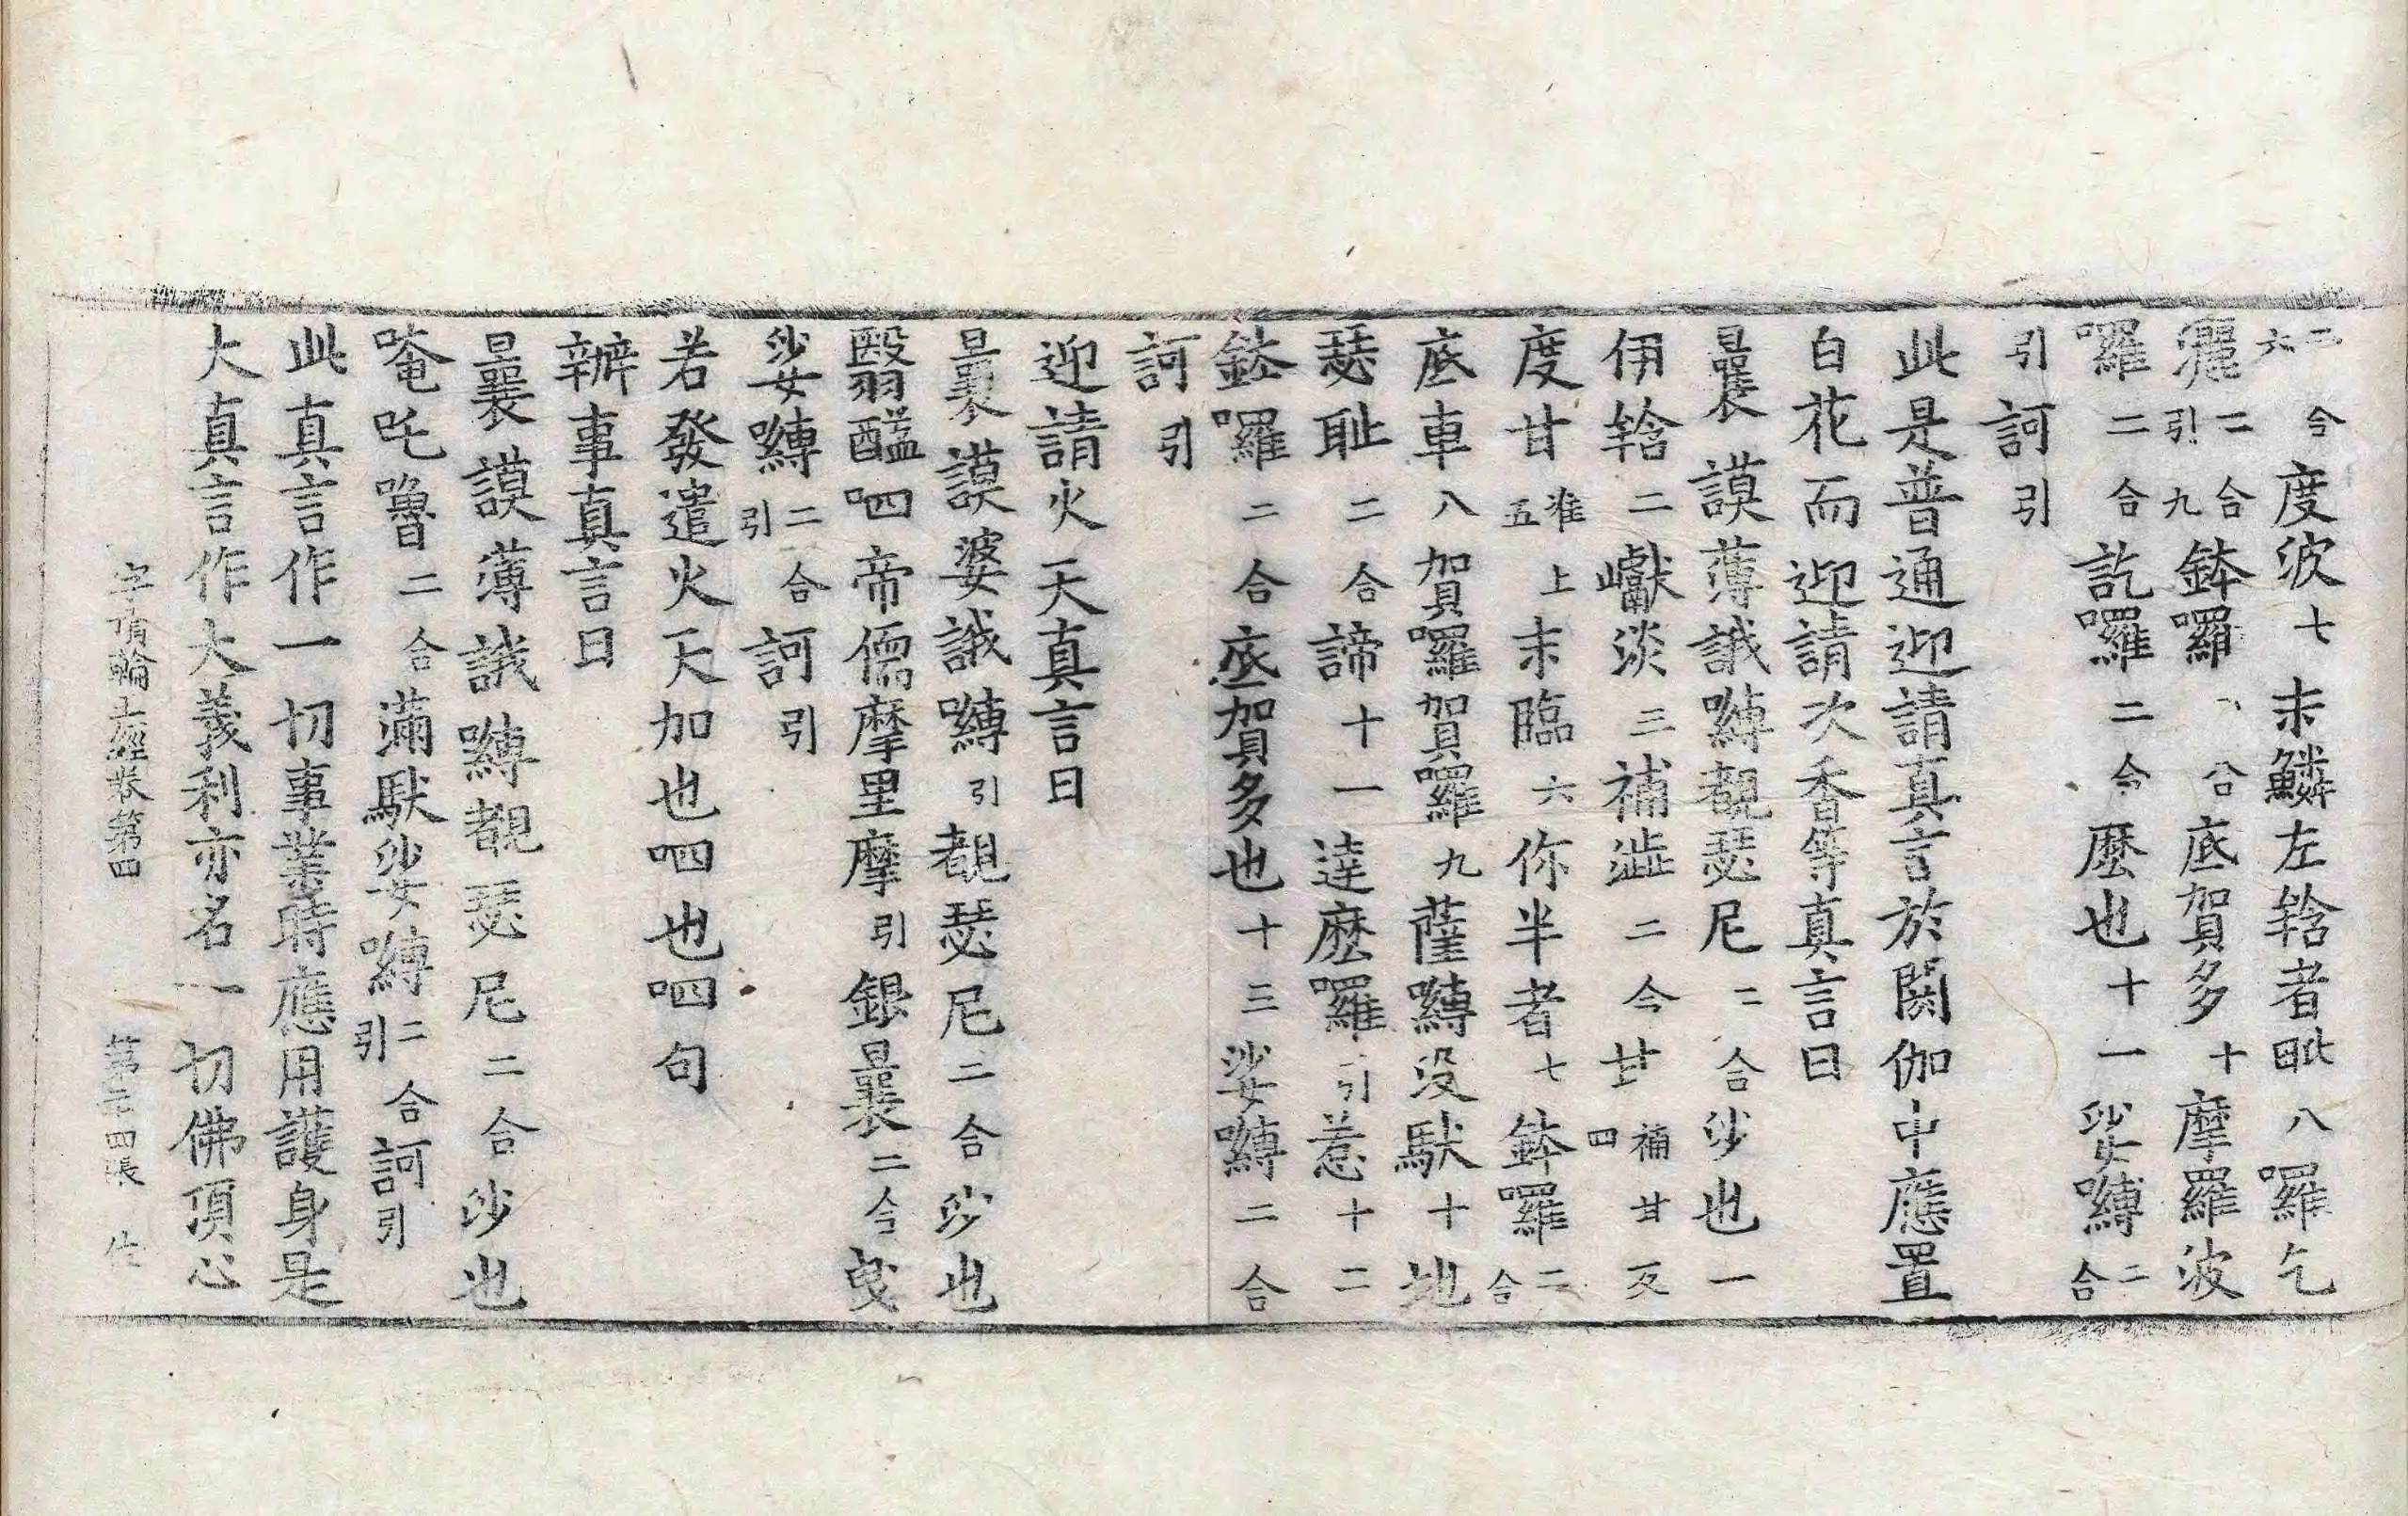 二合六度波七末鱗左輅者毗八囉乞
灑二合引九鉢囉二合底賀多十摩羅波
囉二合訖囉二合麽也十一娑嚩二合
引訶引
此是普通迎請真言於閼伽中應置
白花而迎請次香等真言曰
曩謨薄誐嚩覩瑟尼二合沙也一
伊輅二巘淡三補澁二合甘補甘反四
度甘准上五末臨六你半者七鉢囉二合
底車八賀囉賀囉九薩嚩没馱十地
瑟耻二合諦十一達麽囉引惹十二
鉢囉二合底賀多也十三娑嚩二合
訶引
迎請火天真言曰
曩謨婆誐嚩引覩瑟尼二合沙也
翳醯呬帝儒摩里摩引銀曩二合曳
娑嚩二合引訶引
若發遣火天加也呬也呬句
辦事真言曰
曩謨薄誐嚩覩瑟尼二合沙也
唵吒嚕二合滿馱娑嚩二合引訶引
此真言作一切事業時應用護身是
大真言作大義利亦名一切佛頂心
字頂輪王經卷第四 第二十四張